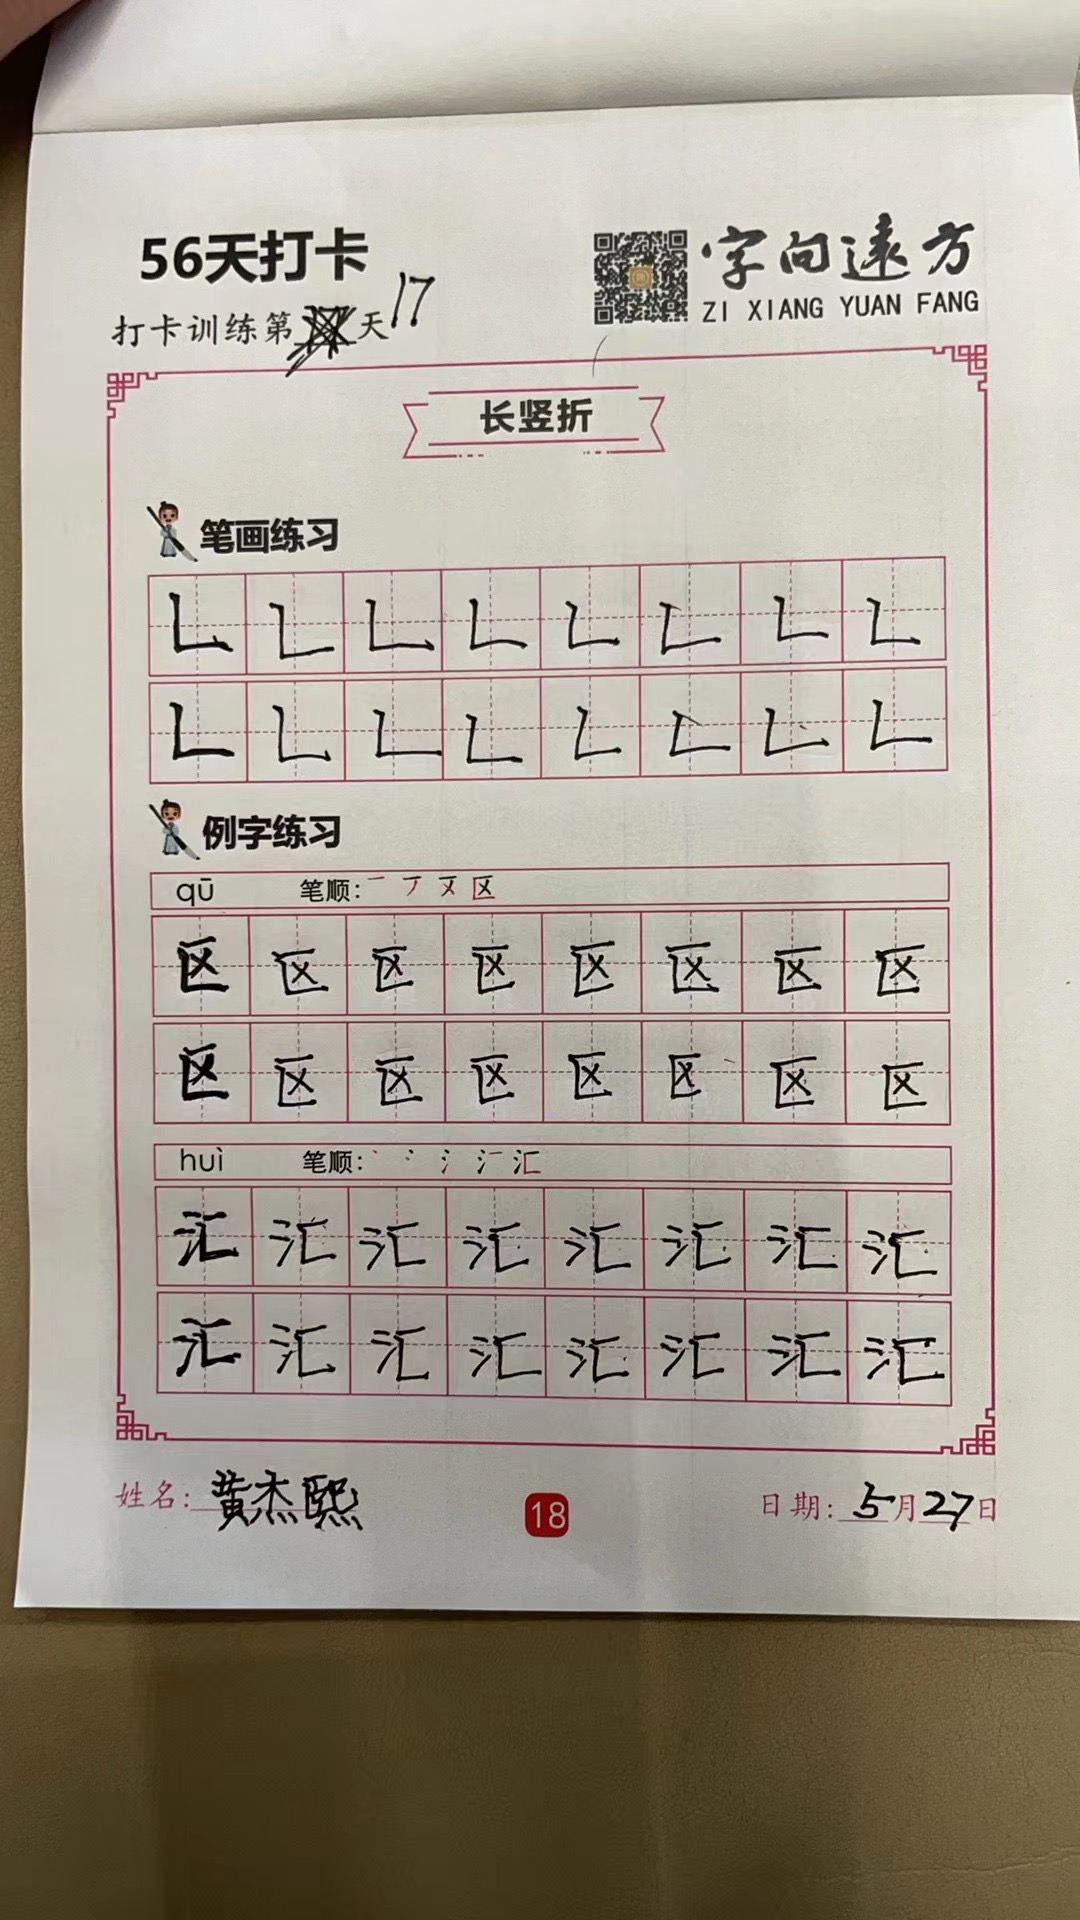 56天打卡
字向远方
ZI XIANG YUAN FANG
打卡训练第 天 17
长竖折
笔画练习
𠃊 𠃊 𠃊 𠃊 𠃊 𠃊 𠃊 𠃊
𠃊 𠃊 𠃊 𠃊 𠃊 𠃊 𠃊 𠃊
例字练习
qū 笔顺: 区
区 区 区 区 区 区 区 区
区 区 区 区 区 区 区 区
huì 笔顺: 汇
汇 汇 汇 汇 汇 汇 汇 汇
汇 汇 汇 汇 汇 汇 汇 汇
姓名: 黄杰熙
18
日期: 5月27日